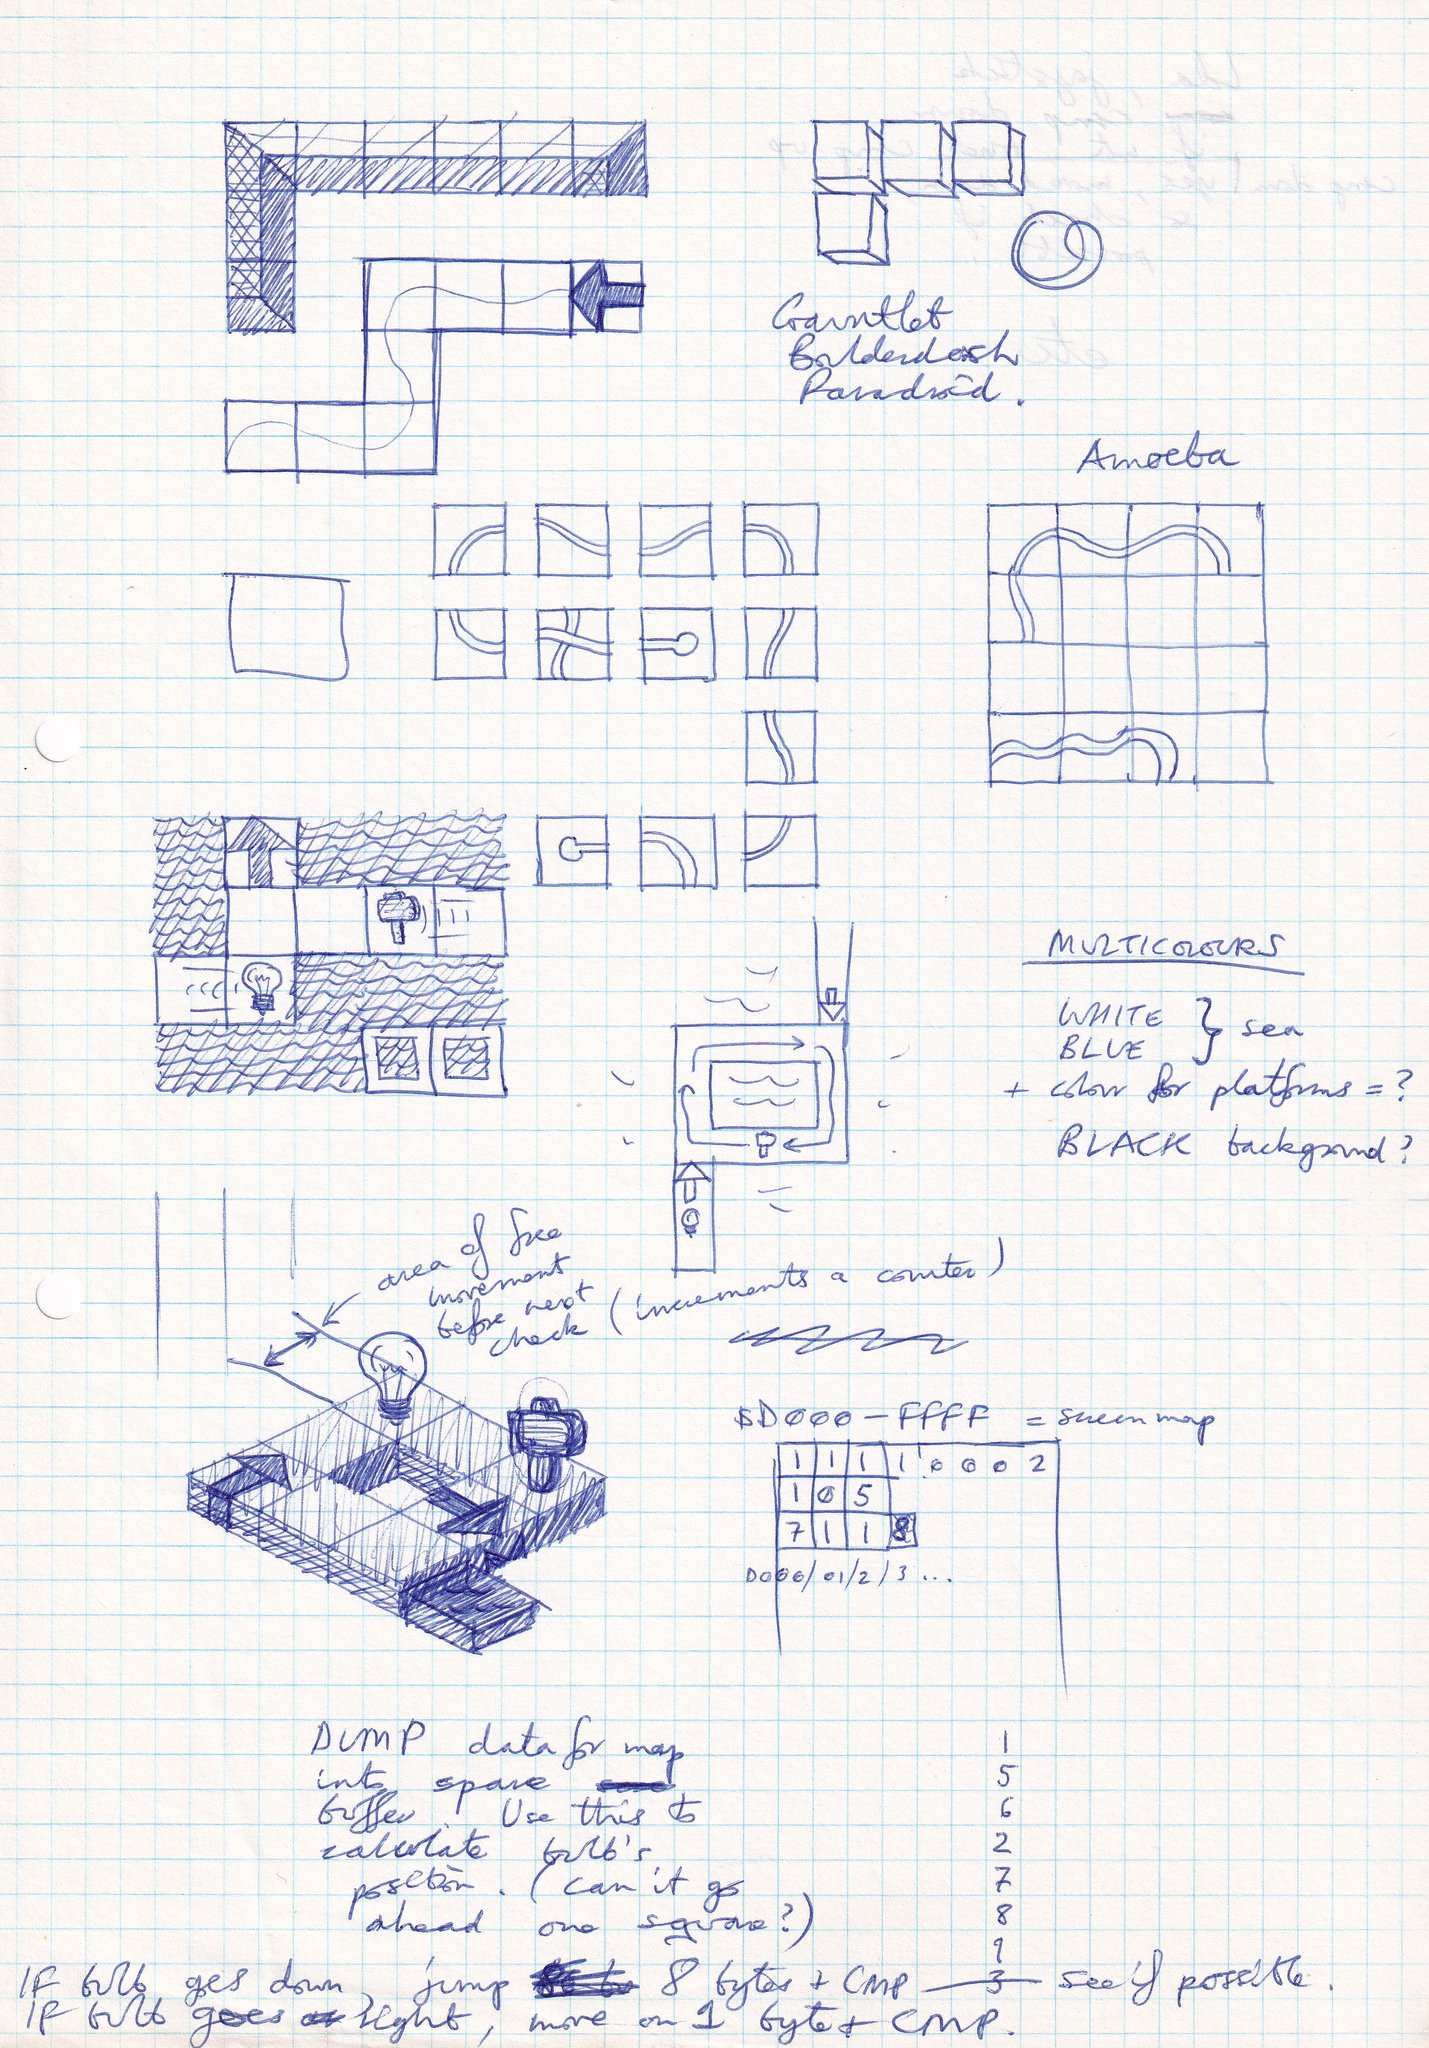 Gauntlet
Boulderdash
Paradroid.
Amoeba
MULTICOLOURS
WHITE
BLUE } sea
+ colour for platforms = ?
BLACK background?
area of free
movement
before next
check (increments a counter)
$D000 - FFFF = screen map
1 1 1 1 0 0 0 2
1 0 5
7 1 1 8
D000/01/2/3 ...
DUMP data for map
into spare
buffer. Use this to
calculate bulb's
position. (can it go
ahead one square?)
1
5
6
2
7
8
9
3
IF bulb goes down, jump 8 bytes + CMP — see if possible.
IF bulb goes right, move on 1 byte + CMP.